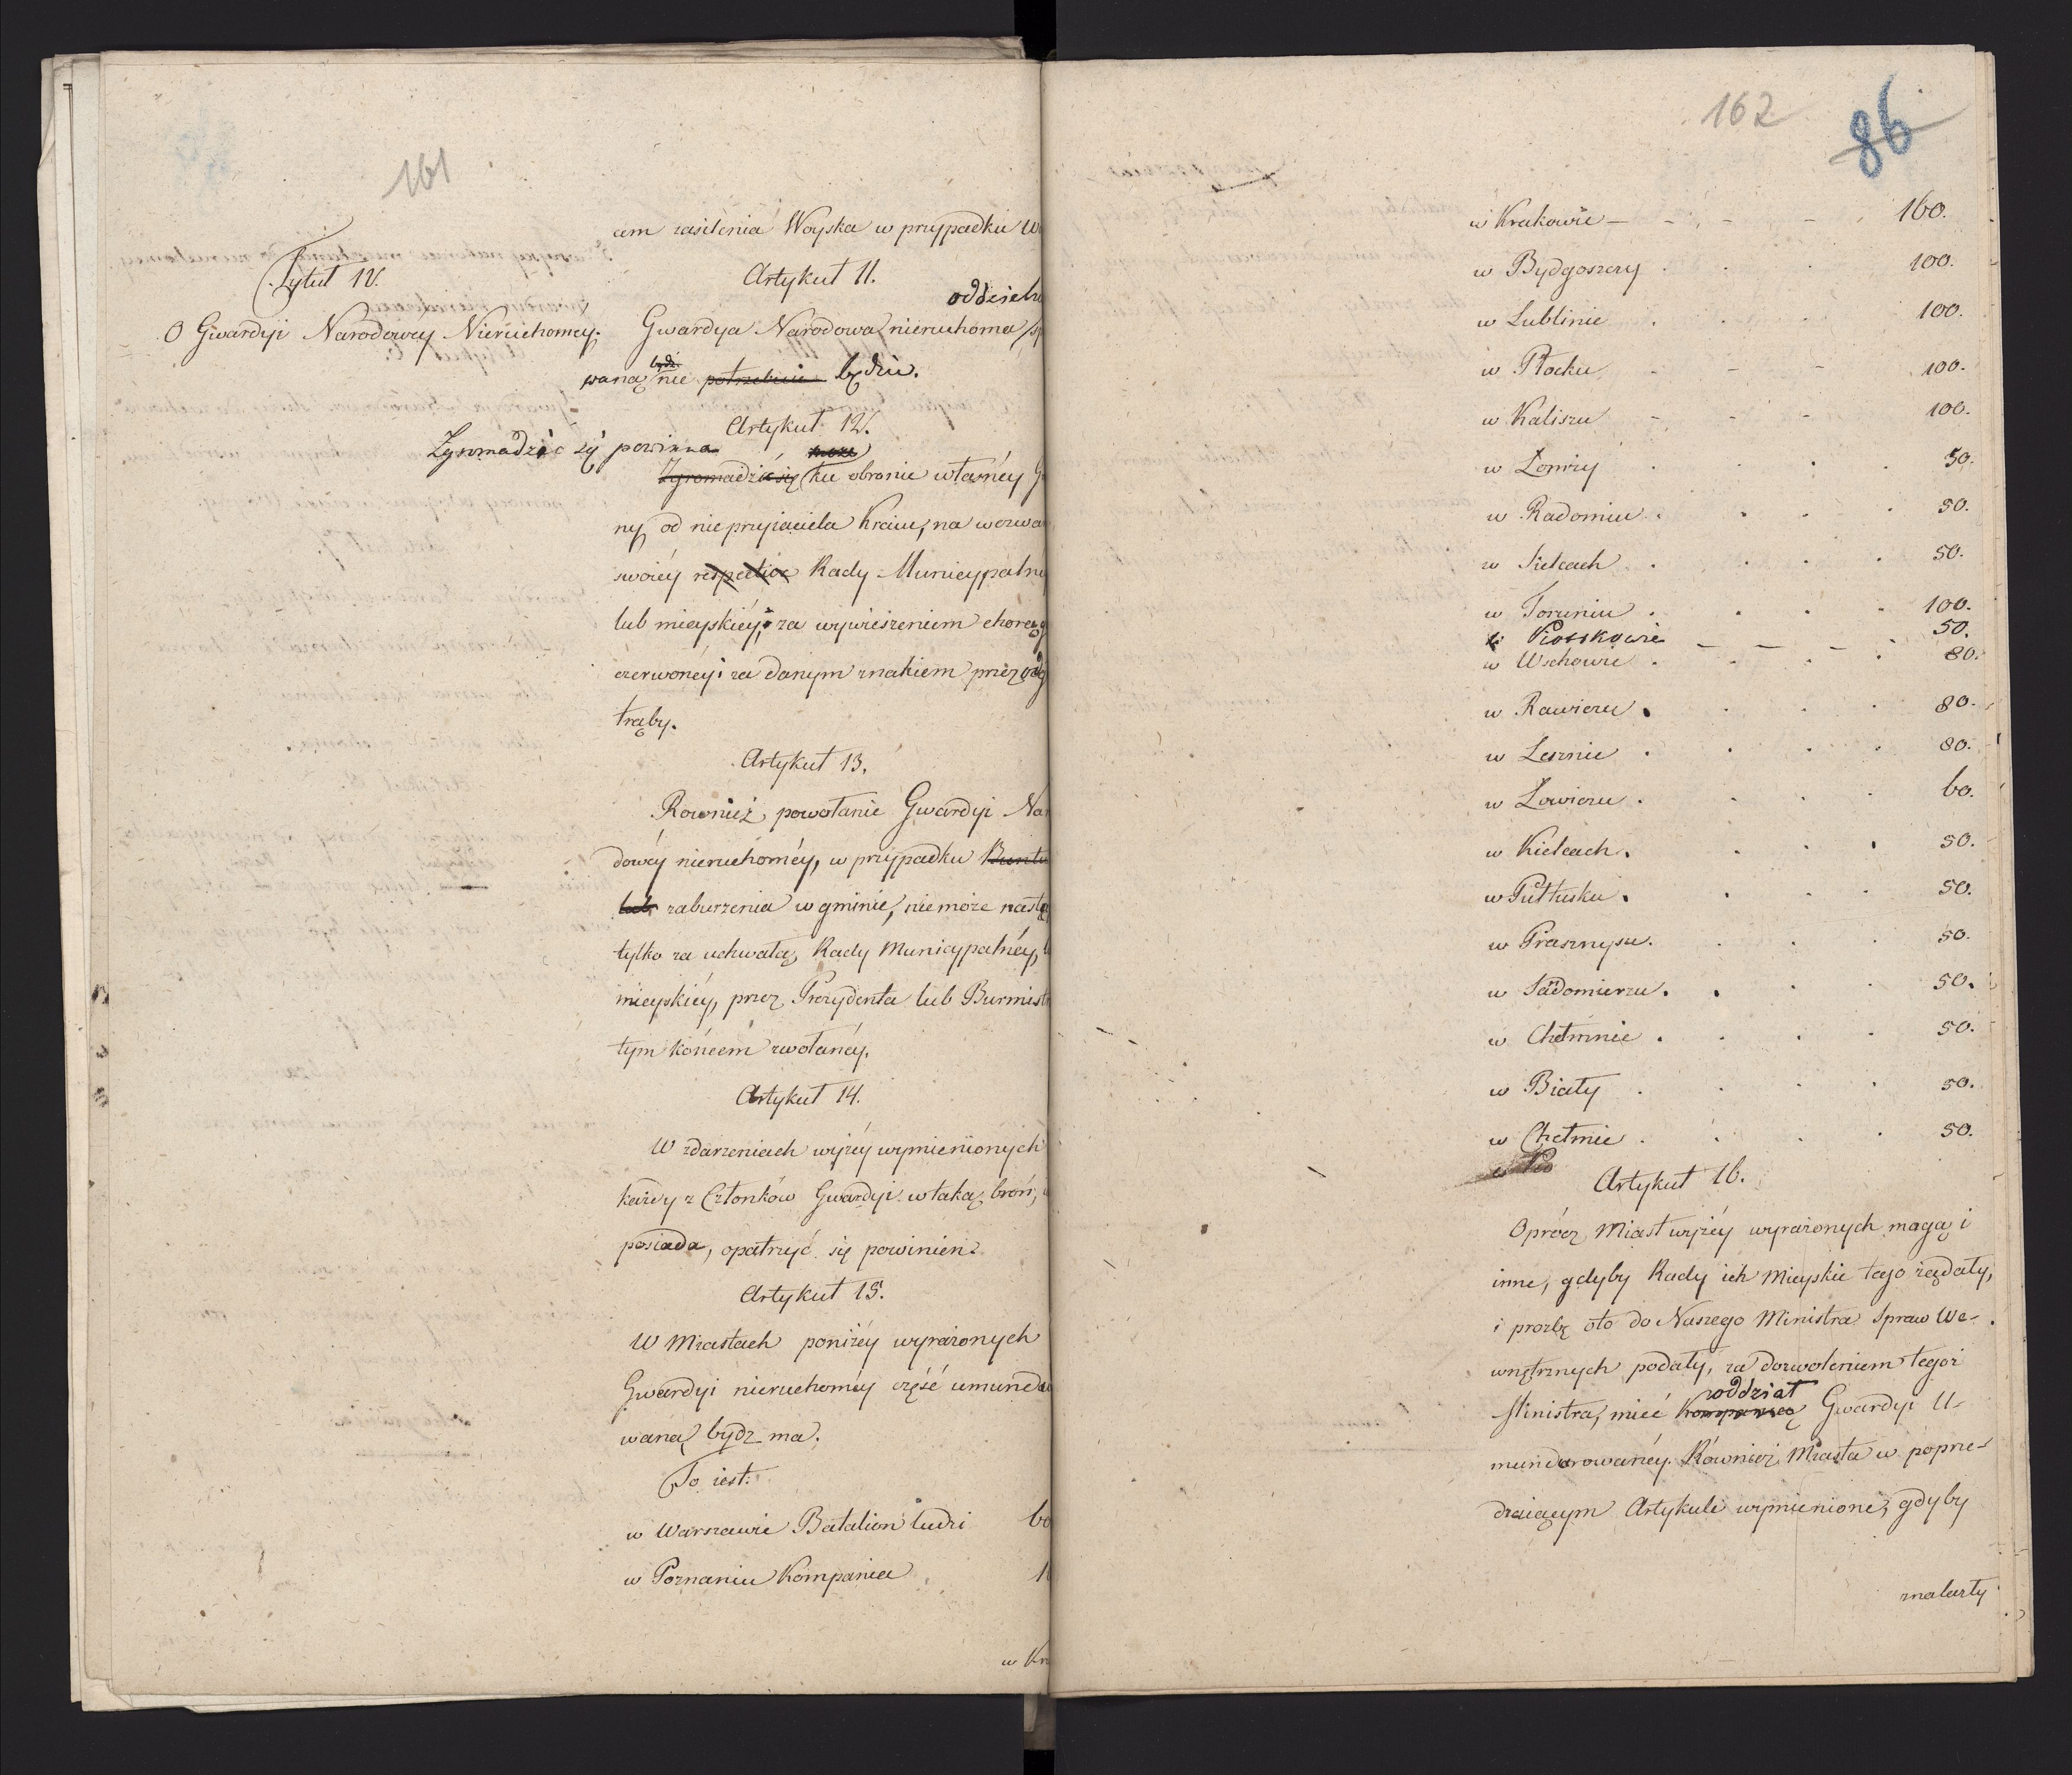 161
cem zasilenia Woyska w przypadku
Tytuł IV.
O Gwardyi Narodowey Nieruchomey.
Artykuł 11.
oddziel
Gwardya Narodowa nieruchoma
waną bydź nie potrzebuie będzie.
Artykuł 12.
Zgromadzić się powinna
może
Zgromadzić się ku obronie własnéy
ny od nieprzyiaciela Kraiu, na wezwa
swoiéy respective Rady Municypalné
lub mieyskiéy, za wywieszeniem chorąg
czerwonéy i za danym znakiem przez odg
trąby.
Artykuł 13.
Rownież, powołanie Gwardyi Na
dowéy nieruchoméy, w przypadku Buntu
lub zaburzenia w gminie, nie może nastą
tylko za uchwałą Rady Municypalnéy,
mieyskiéy, przez Prezydenta lub Burmist
tym końcem zwołanéy.
Artykuł 14.
W zdarzeniach wyżéy wymienionych
każdy z Członków Gwardyi w taką broń,
posiada, opatrzyć się powinien.
Artykuł 15.
W Miastach poniżéy wyrażonych
Gwardyi nieruchoméy część umundu
waną bydz ma.
To iest:
w Warszawie Batalion ludzi 60
w Poznaniu Kompania 1
w Kr
162
86
w Krakowie 160.
w Bydgoszczy 100.
w Lublinie 100.
w Płocku 100.
w Kaliszu 100.
w Łomży 50.
w Radomiu 50.
w Sielcach 50.
w Toruniu 100.
w Piotrkowie 50.
w Wschowie 80.
w Rawiczu 80.
w Lesznie 80.
w Łowiczu 60.
w Kielcach 50.
w Pułtusku 50.
w Prasznyszu 50.
w Sandomierzu 50.
w Chełmnie 50.
w Biały 50.
w Chełmie 50.
w Pio
Artykuł 16.
Oprócz Miast wyżéy wyrażonych mogą i
inne, gdyby Rady ich Mieyskie tego żądały,
i prozbę oto do Naszego Ministra Spraw We-
wnętrznych podały, za dozwoleniem tegoż
oddział
Ministra, mieć Kompanią Gwardyi U-
mundurowanéy. Również Miasta w poprze-
dzaiącym Artykule wymienione, gdyby
znalazły